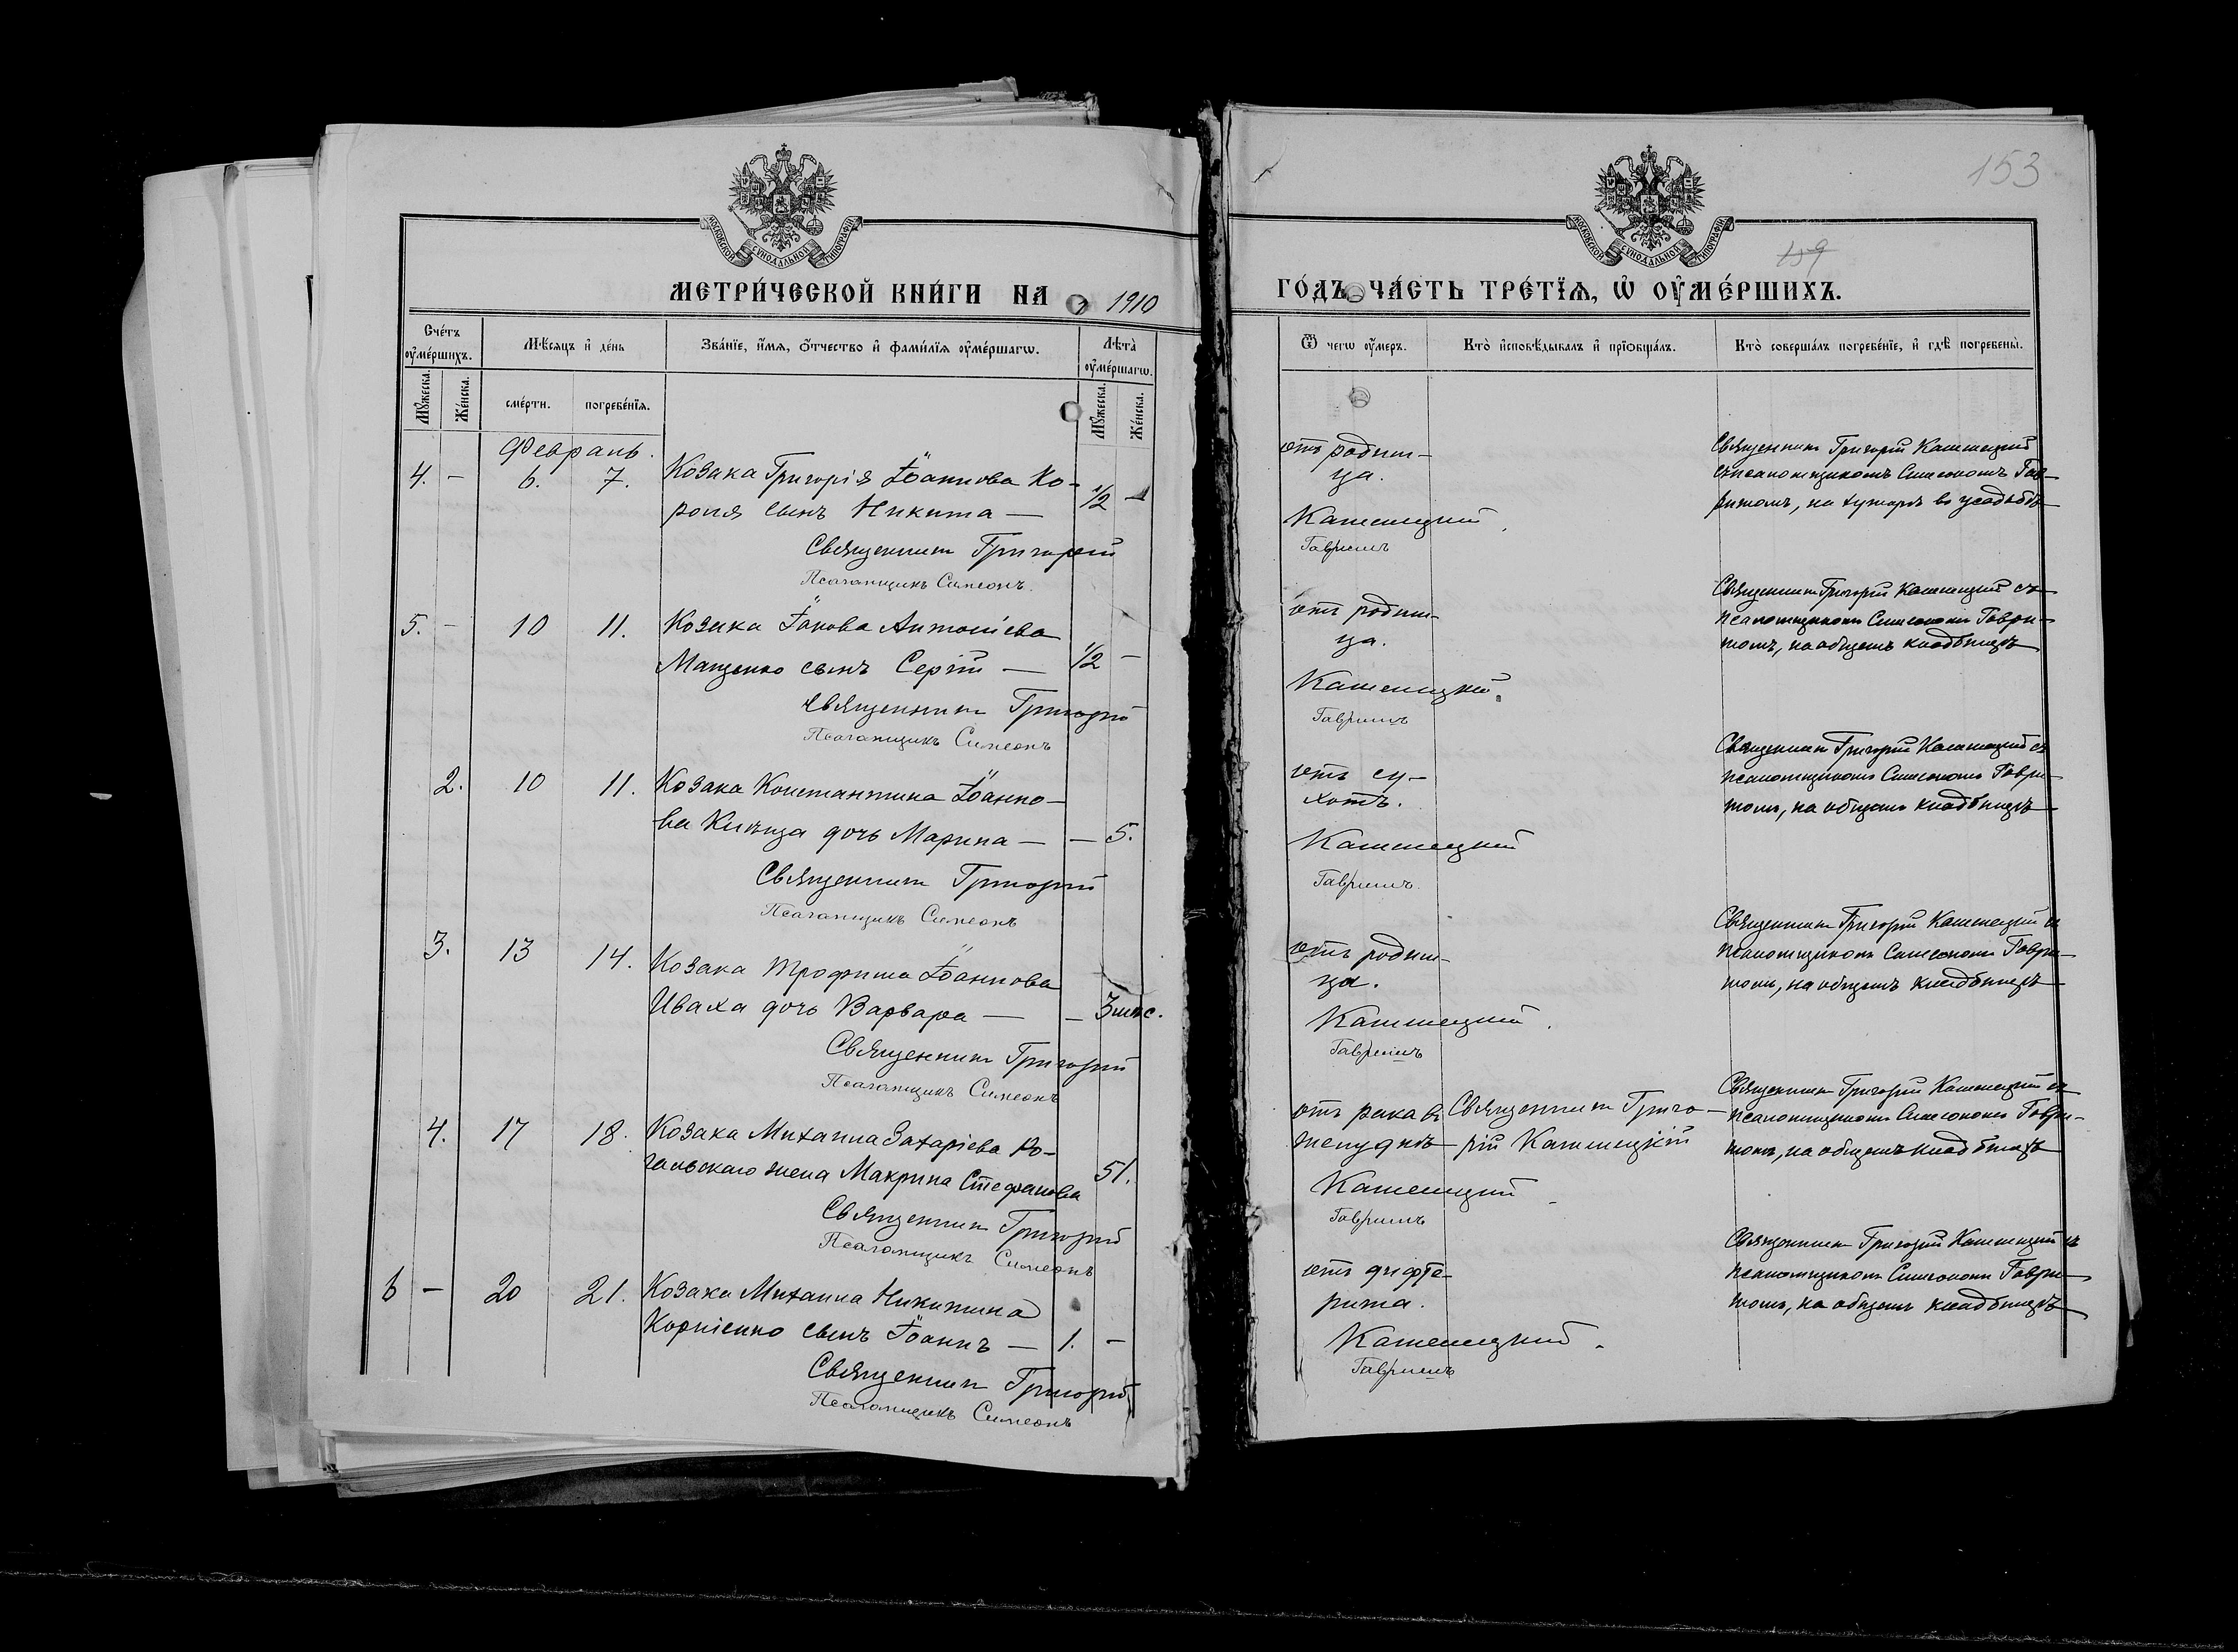 153
159
МОСКОВСКОЙ СѴНОДАЛЬНОЙ ТИПОГРАФІИ
МОСКОВСКОЙ СѴНОДАЛЬНОЙ ТИПОГРАФІИ
МЕТРИ́ЧЕСКОЙ КНИ́ГИ НА 1910
ГО́ДЪ ЧА́СТЬ ТРЕ́ТЇѦ, Ѡ҆ ОУ҆МЕ́РШИХЪ.
Сче́тъ оу҆ме́ршихъ.
Мꙋ́жеска.
Же́нска.
Мѣ́сяцъ и҆ де́нь
сме́рти.
погребе́нїѧ.
Зва́нїе, и҆́мѧ, ѻ҆́тчество и҆ фами́лїѧ оу҆ме́ршагѡ.
Лѣ́та̀ оу҆ме́ршагѡ.
Мꙋ́жеска.
Же́нска.
Ѿ чегѡ̀ оу҆́меръ.
Кто̀ и҆сповѣ́дывалъ и҆ прїѡбща́лъ.
Кто̀ соверша́лъ погребе́нїе, и҆ гдѣ̀ погребены̀.
Февраль.
4. - 6. 7. Козака Григорія Іоаннова Ко-
роля сынъ Никита — 1/2 -
Священникъ Григорій
Псаломщикъ Симеонъ
отъ родим-
ца.
Каменецкій
Гавришъ
Священникъ Григорій Каменецкій
съ псаломщикомъ Симеономъ Гав-
ришомъ, на хуторѣ въ усадьбѣ
5. - 10 11. Козака Іакова Антоніева
Маценко сынъ Сергій — 1/2 -
Священникъ Григорій
Псаломщикъ Симеонъ
отъ родим-
ца.
Каменецкій.
Гавришъ
Священникъ Григорій Каменецкій съ
псаломщикомъ Симеономъ Гаври-
шомъ, на общемъ кладбищѣ
2. 10 11. Козака Константина Іоанно-
ва дочь Марина — — 5.
Священникъ Григорій
Псаломщикъ Симеонъ
отъ су-
хотъ.
Каменецкій
Гавришъ
Священникъ Григорій Каменецкій съ
псаломщикомъ Симеономъ Гаври-
шомъ, на общемъ кладбищѣ
3. 13 14. Козака Трофима Іоаннова
Иваха дочь Варвара — — 3 мѣс.
Священникъ Григорій
Псаломщикъ Симеонъ
отъ родим-
ца.
Каменецкій.
Гавришъ
Священникъ Григорій Каменецкій съ
псаломщикомъ Симеономъ Гаври-
шомъ, на общемъ кладбищѣ
4. 17 18. Козака Михаила Захаріева
жена Макрина Стефанова 51.
Священникъ Григорій
Псаломщикъ Симеонъ
отъ рака въ
желудкѣ
Священникъ Григо-
рій Каменецкій
Каменецкій
Гавришъ
Священникъ Григорій Каменецкій съ
псаломщикомъ Симеономъ Гаври-
шомъ, на общемъ кладбищѣ
6 - 20 21. Козака Михаила Никитина
Корніенко сынъ Іоаннъ — 1. -
Священникъ Григорій
Псаломщикъ Симеонъ
отъ дифте-
рита.
Каменецкій.
Гавришъ
Священникъ Григорій Каменецкій съ
псаломщикомъ Симеономъ Гаври-
шомъ, на общемъ кладбищѣ